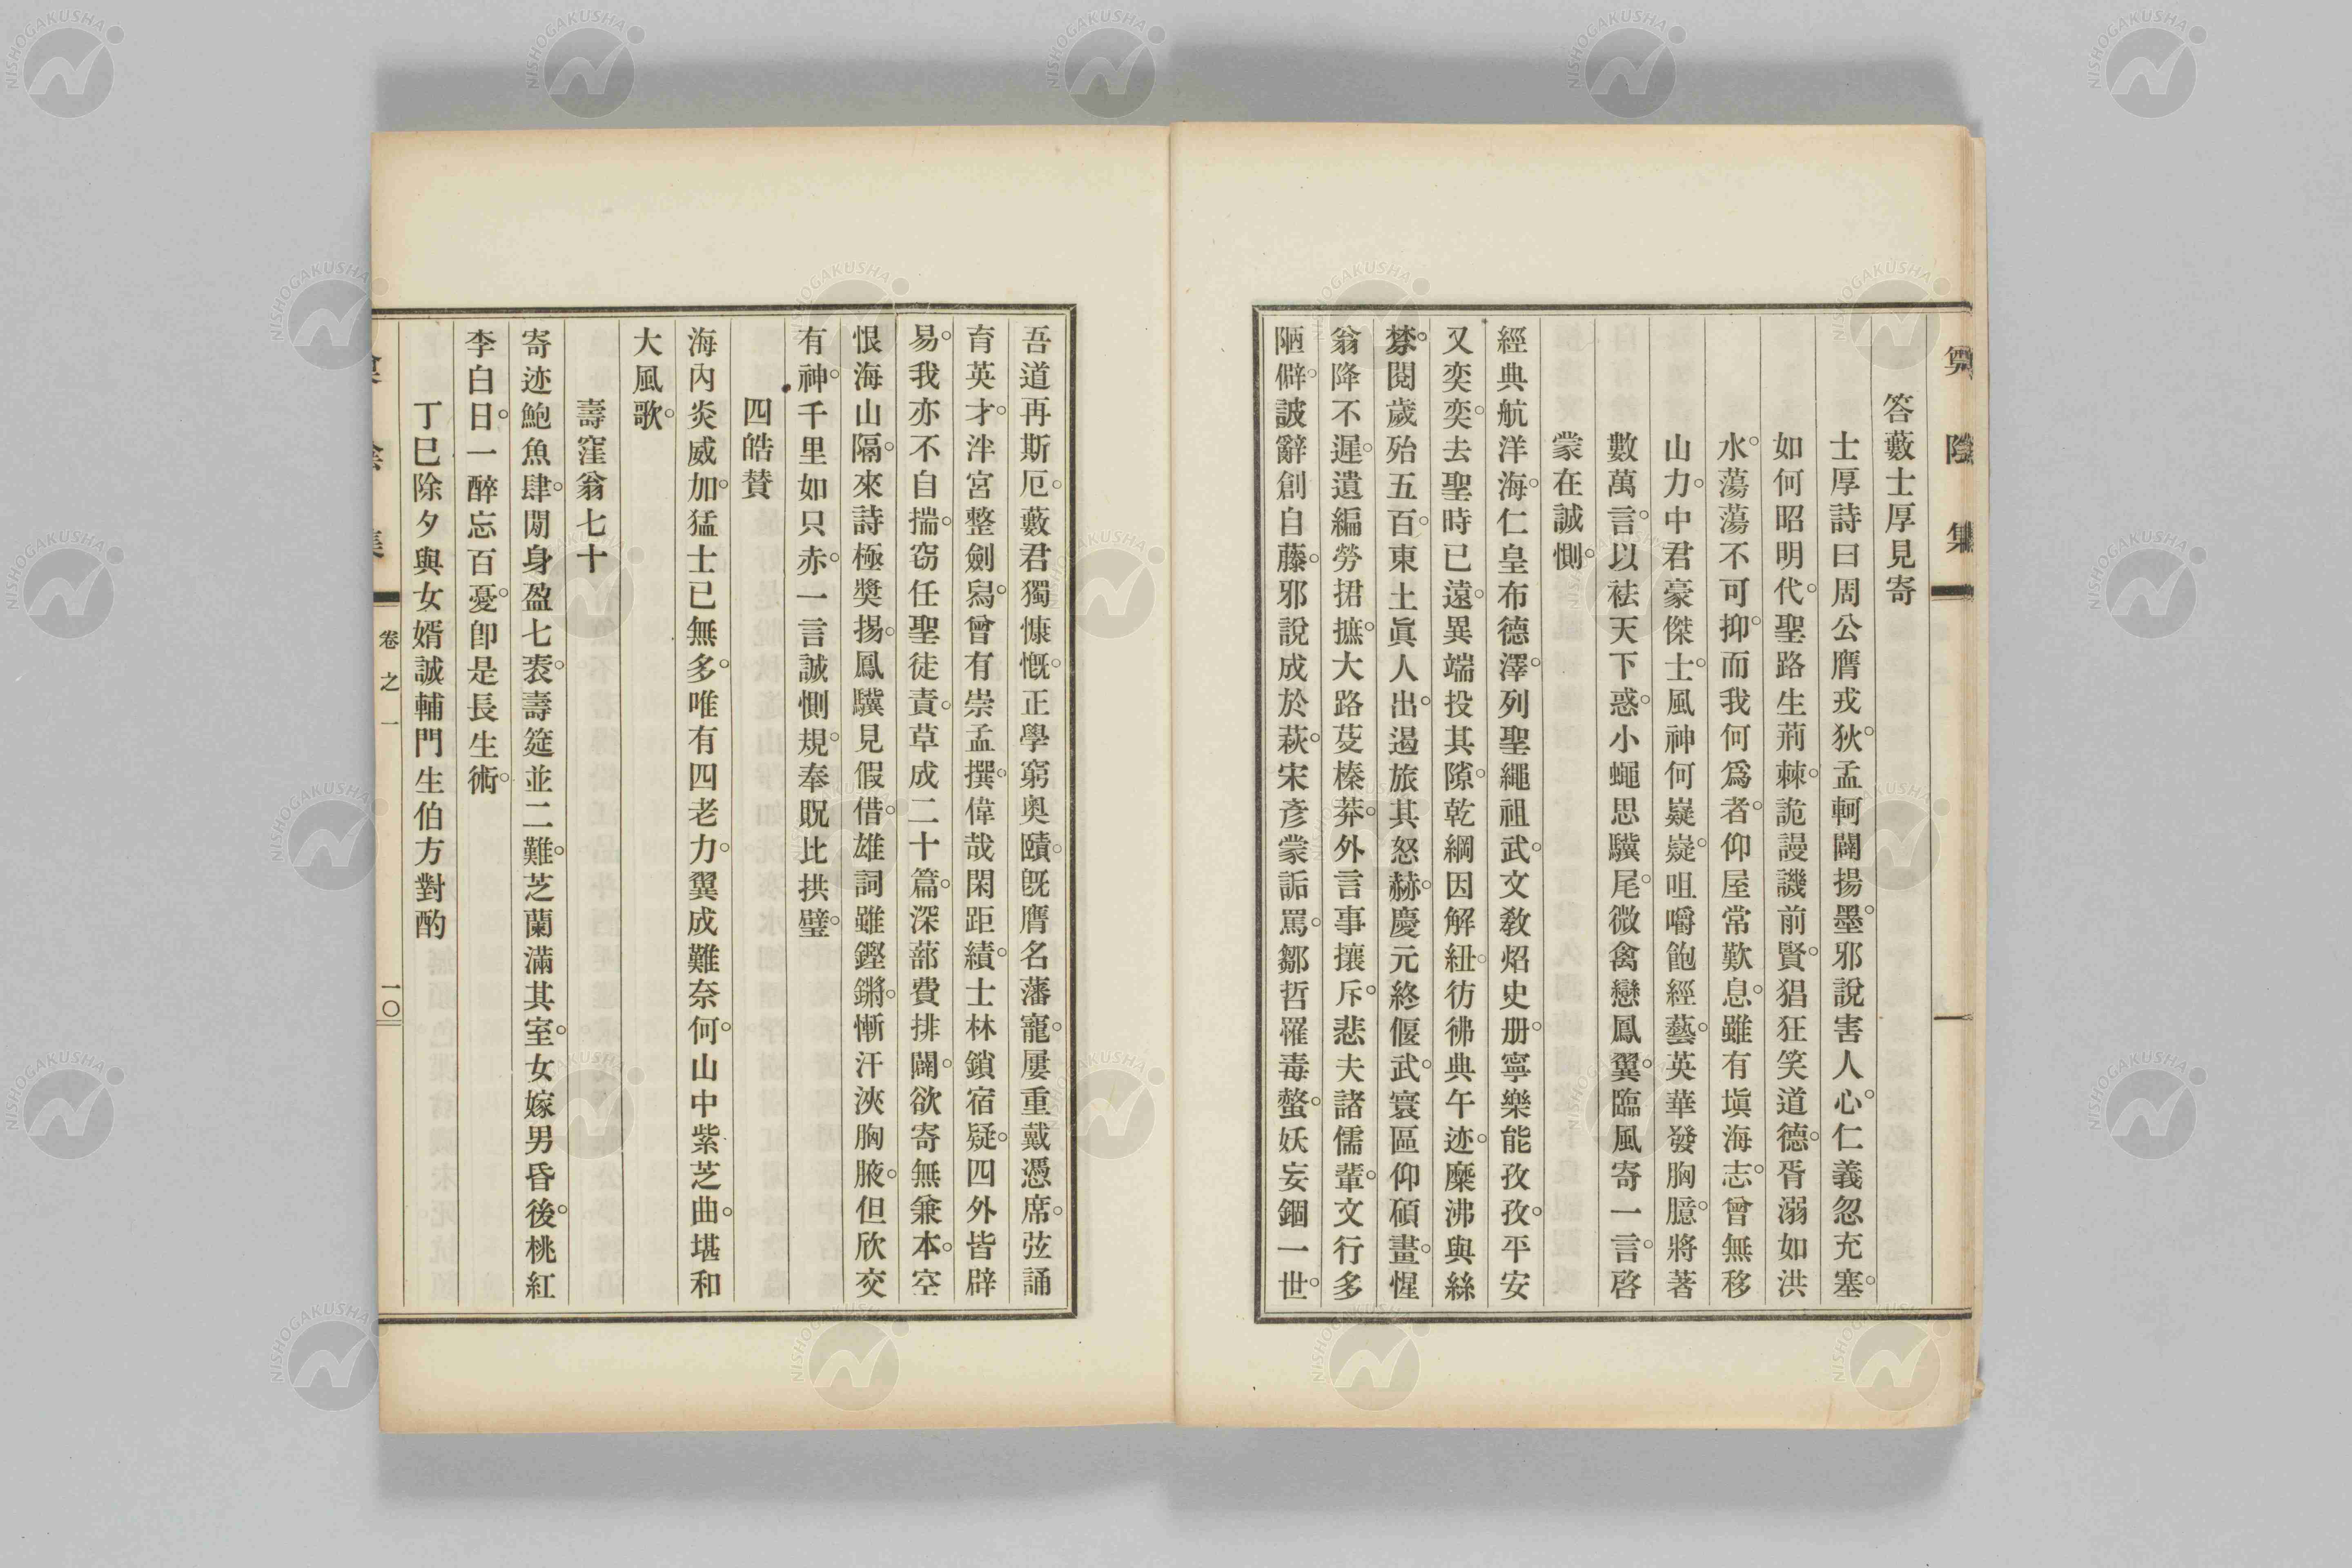 答藪士厚見寄
士厚詩曰周公膺戎狄。孟軻闢揚墨。邪說害人心。仁義忽充塞。
如何昭明代。聖路生荊棘。詭謾譏前賢。猖狂笑道德。胥溺如洪
水。蕩蕩不可抑。而我何爲者。仰屋常歎息。雖有塡海志。曾無移
山力。中君豪傑士。風神何嶷嶷。咀嚼飽經藝。英華發胸臆。將著
數萬言。以袪天下惑。小蠅思驥尾。微禽戀鳳翼。臨風寄一言。啓
蒙在誠惻。
經典航洋海。仁皇布德澤。列聖繩祖武。文敎炤史册。寧樂能孜孜。平安
又奕奕。去聖時已遠。異端投其隙。乾綱因解紐。彷彿典午迹。糜沸與絲
棼。閱歲殆五百。東土眞人出。遏旅其怒赫。慶元終偃武。寰區仰碩畫。惺
翁降不遲。遺編勞捃摭。大路芟榛莽。外言事攘斥。悲夫諸儒輩。文行多
陋僻。詖辭創自藤。邪說成於萩。宋彥蒙詬罵。鄒哲罹毒螫。妖妄錮一世。
吾道再斯厄。藪君獨慷慨。正學窮奧賾。旣膺名藩寵。屢重戴憑席。弦誦
育英才。泮宮整劍舄。曾有崇孟撰。偉哉閑距績。士林鎖宿疑。四外皆辟
易。我亦不自揣。窃任聖徒責。草成二十篇。深蔀費排闢。欲寄無兼本。空
恨海山隔。來詩極奬揚。鳳驥見假借。雄詞雖鏗鏘。慚汗浹胸腋。但欣交
有神。千里如只赤。一言誠惻規。奉貺比拱璧。
四皓賛
海內炎威加。猛士已無多。唯有四老力。翼成難奈何。山中紫芝曲。堪和
大風歌。
壽窪翁七十
寄迹鮑魚肆。閒身盈七袠。壽筵並二難。芝蘭滿其室。女嫁男昏後。桃紅
李白日。一醉忘百憂。卽是長生術。
丁巳除夕與女婿誠輔門生伯方對酌
卷之一
一〇